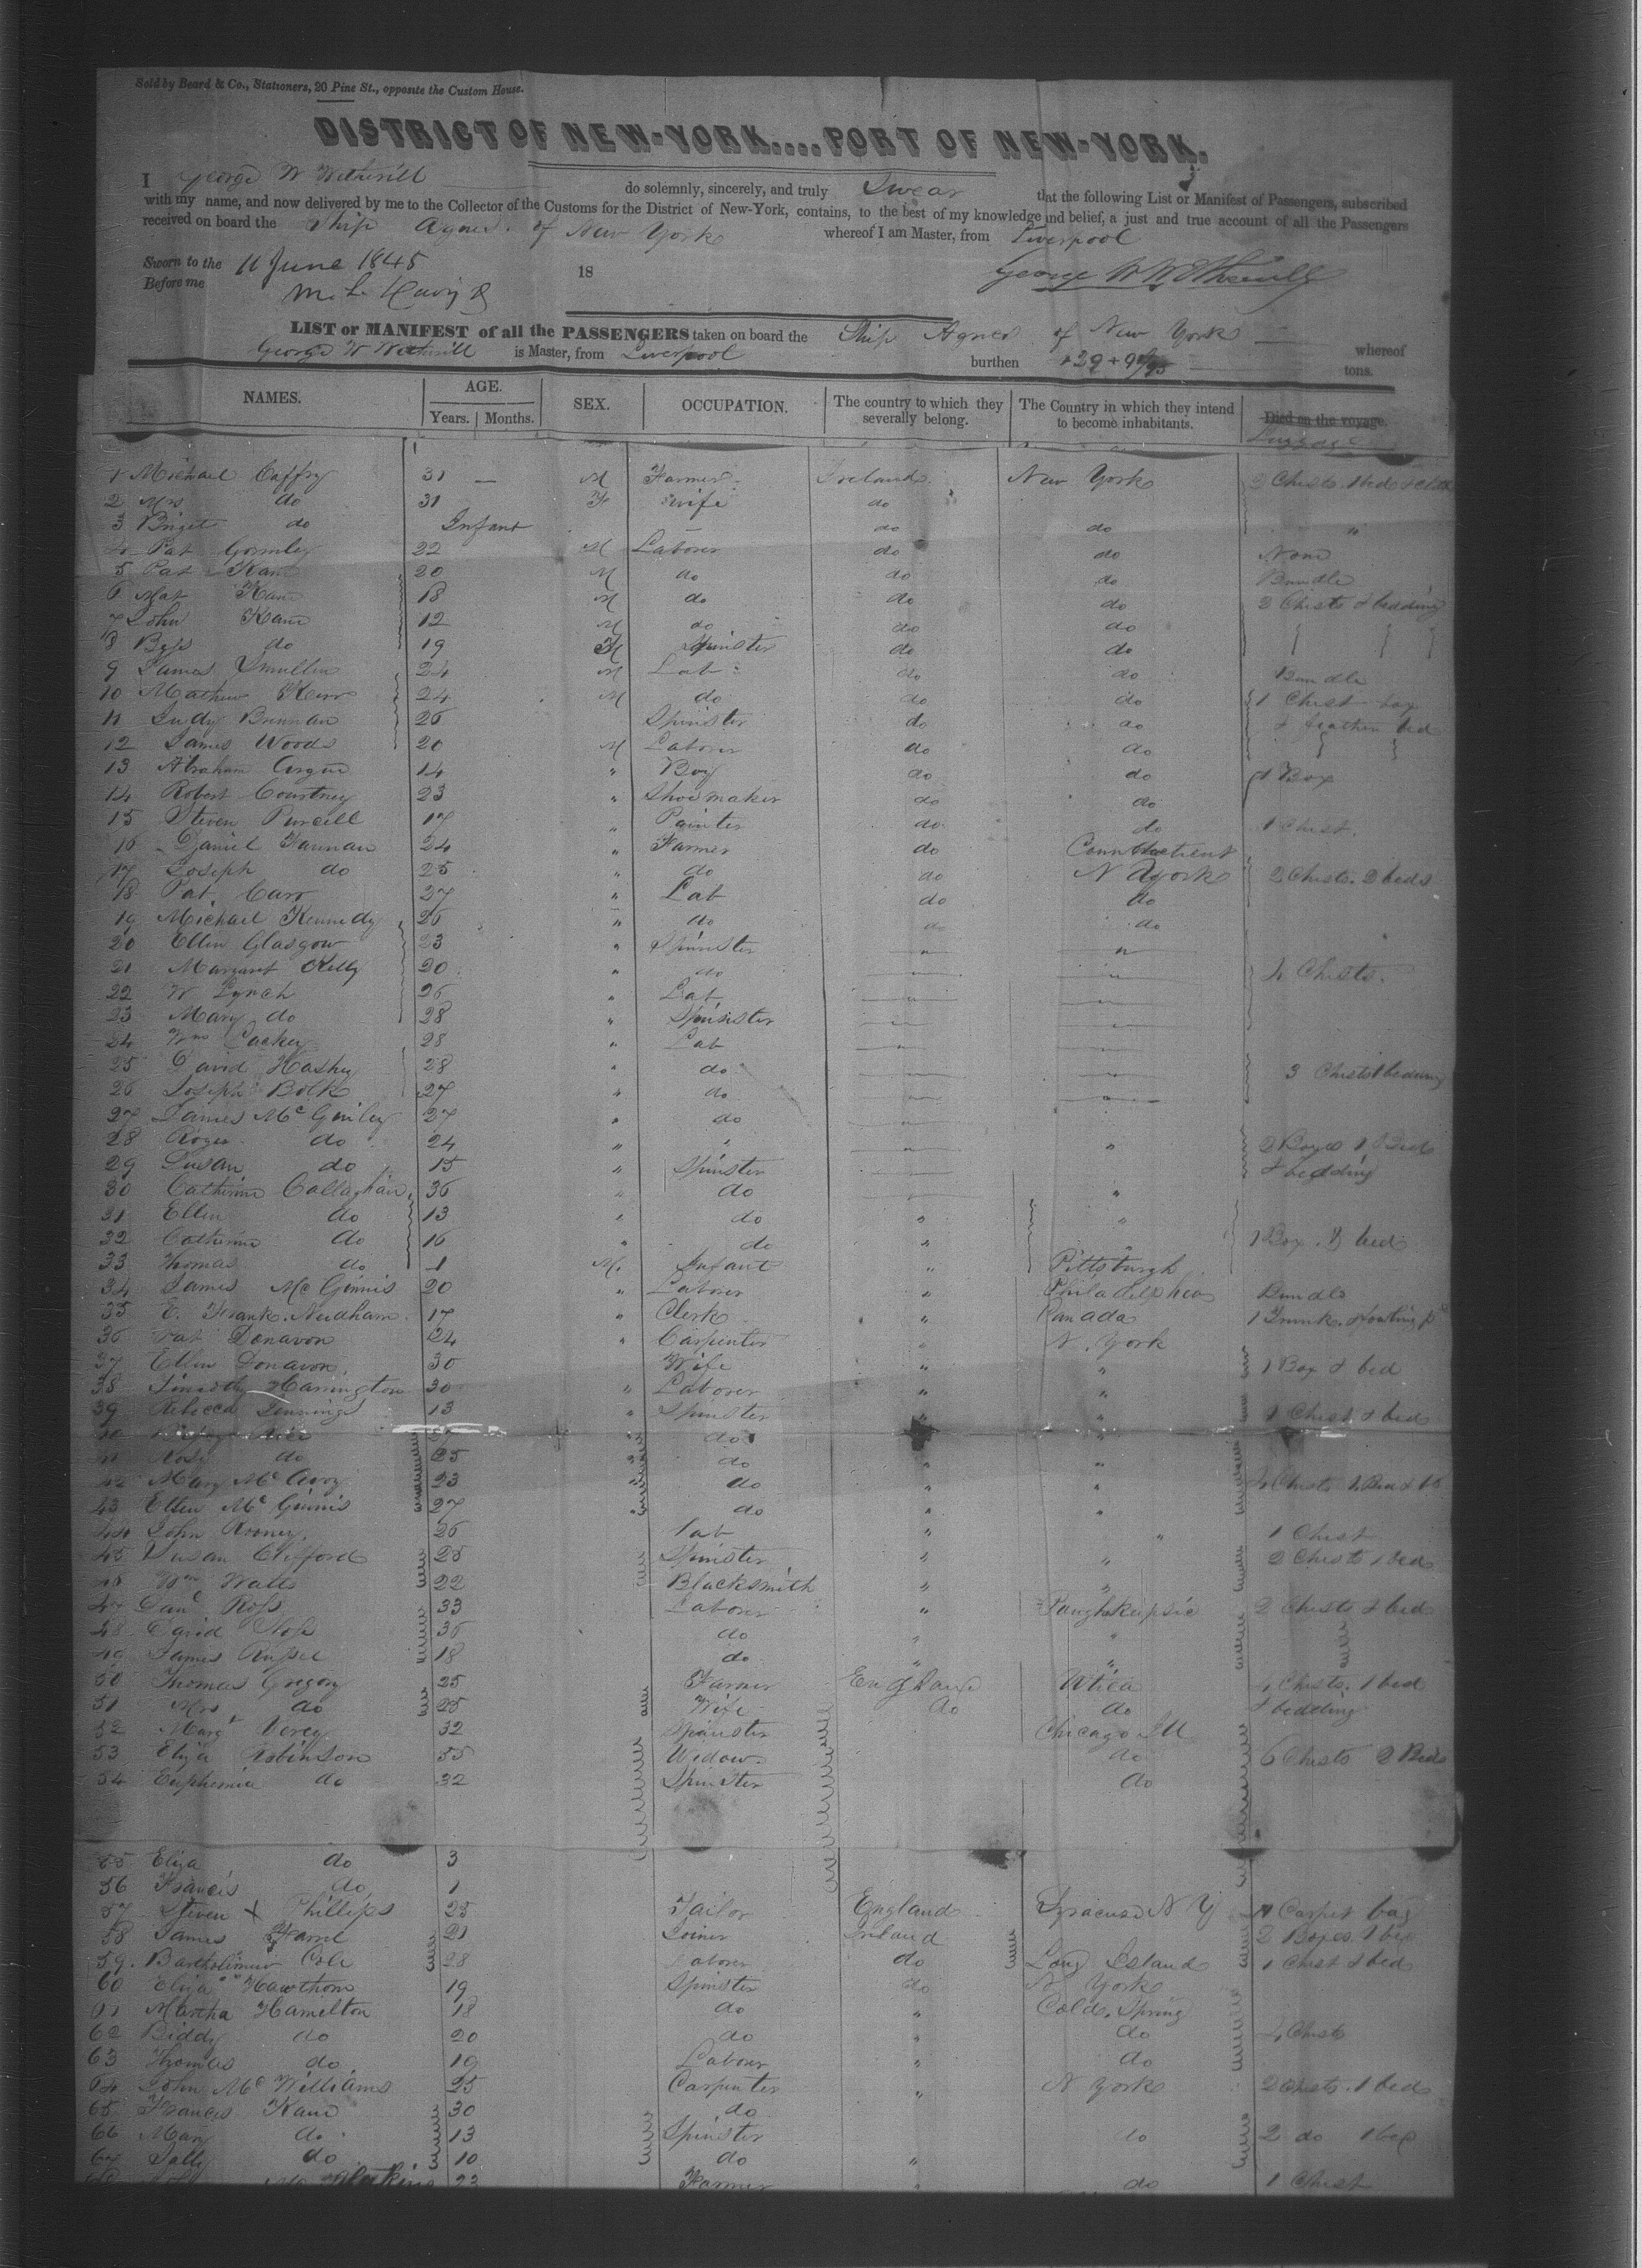 Sold by Beard & Co., Stationers, 20 Pine St., opposite the Custom House.
DISTRICT OF NEW-YORK....PORT OF NEW-YORK.
I George W Wetherill do solemnly, sincerely, and truly Swear that the following List or Manifest of Passengers, subscribed
with my name, and now delivered by me to the Collector of the Customs for the District of New-York, contains, to the best of my knowledge and belief, a just and true account of all the Passengers
received on board the Ship Agnes of New York whereof I am Master, from Liverpool
Sworn to the 11 June 1845 18 George W Wetherill
Before me
LIST or MANIFEST of all the PASSENGERS taken on board the Ship Agnes of New York whereof
George W Wetherill is Master, from Liverpool burthen tons.
NAMES. AGE. SEX. OCCUPATION. The country to which they severally belong. The Country in which they intend to become inhabitants. Died on the voyage.
Years. Months. Luggage
1 Michael Caffry 31 — M Farmer Ireland New York 2 Chests. 1 bed
2 Mrs do 31 F wife do
3 Briget do Infant do do "
4 Pat Gormley 22 M Laborer do do None
5 Pat Kane 20 M do do do Bundle
6 Mat Kane 18 M do do do 2 Chests & bedding
7 John Kane 12 M do do do
8 Bess do 19 Spinster do do
9 James Smullin 24 M Lab: do do Bundle
10 Mathew Kerr 24 M do do do 1 Chest box
11 Judy Brennan 26 Spinster do do & feather bed
12 James Woods 20 M Laborer do do
13 Abraham 14 " Boy do do 1 Box
14 Robert Courtney 23 " Shoemaker do do
15 Steven Purcell 17 " Painter do do 1 Chest.
16 Daniel Farman 24 " Farmer do Connecticut
17 Joseph do 25 " do do N York 2 Chests. 2 beds
18 Pat. Carr 27 " Lab do do
19 Michael Kennedy 26 " do do do
20 Ellin Glasgow 23 " Spinster " "
21 Margaret Kelly 20 " do " " 4 Chests.
22 W Lynch 26 " Lab " "
23 Mary do 28 " Spinster " "
24 Wm 28 " Lab " "
25 David 28 " do " " 3 Chests & bedding
26 Joseph 27 " do " "
27 James McGinley 27 " do
28 Roger do 24 " " " 2 Boxes 1
29 Susan do 15 " Spinster & bedding
30 Catherine Callaghan 36 " do "
31 Ellen do 13 " do " "
32 Catherine do 16 " do " " 1 Box. & bed
33 Thomas do 1 M. Infant " Pittsburgh
34 James McGinnis 20 " Laborer " Philadelphia Bundle
35 E. Frank. Needham 17 " Clerk " Canada 1 Trunk.
36 Pat Donavon 24 " Carpenter " N. York
37 Ellen Donavon 30 Wife " " 1 Box & bed
38 Timothy Harrington 30 " Laborer " "
39 Rebecca Jennings 13 " Spinster " " 1 Chest & bed
40 " do " "
41 Rose do 25 " do " "
42 Mary McAvoy 23 " do " " 4 Chests
43 Ellen McGinnis 27 " do " "
44 John Rooney 26 Lab " " 1 Chest
45 Susan Clifford 25 Spinster " " 2 Chests 1 bed
46 Wm Watts 22 Blacksmith " "
47 Danl Ross 33 Laborer " Poughkeepsie 2 Chests & bed
48 David 36 do " "
49 James Russel 18 do " "
50 Thomas Gregory 25 Farmer England Utica 4 Chests. 1 bed
51 Mrs do 25 Wife do do & bedding
52 Margt 32 Spinster Chicago Ill
53 Eliza Robinson 55 Widow do 6 Chests 2 Beds
54 Euphemia do 32 Spinster do
55 Eliza do 3
56 Francis do 1
57 Steven X Phillips 25 Tailor England Syracuse N Y Carpet bag
58 James 21 Joiner Ireland 2 Boxes. 1 bed
59. Bartholimew Cole 28 Laborer do Long Island 1 Chest & bed
60 Eliza Hawthorn 19 Spinster do N York
61 Martha Hamelton 18 do " Cold. Spring
62 Biddy do 20 do " do 4 Chests
63 Thomas do 19 Labour " do
64 John McWilliams 25 Carpenter " N York 2 Chests. 1 bed
65 Francis Kane 30 do
66 Mary do 13 Spinster do 2 do 1 bed
67 Sally do 10 do "
68 23 Farmer " do 1 Chest